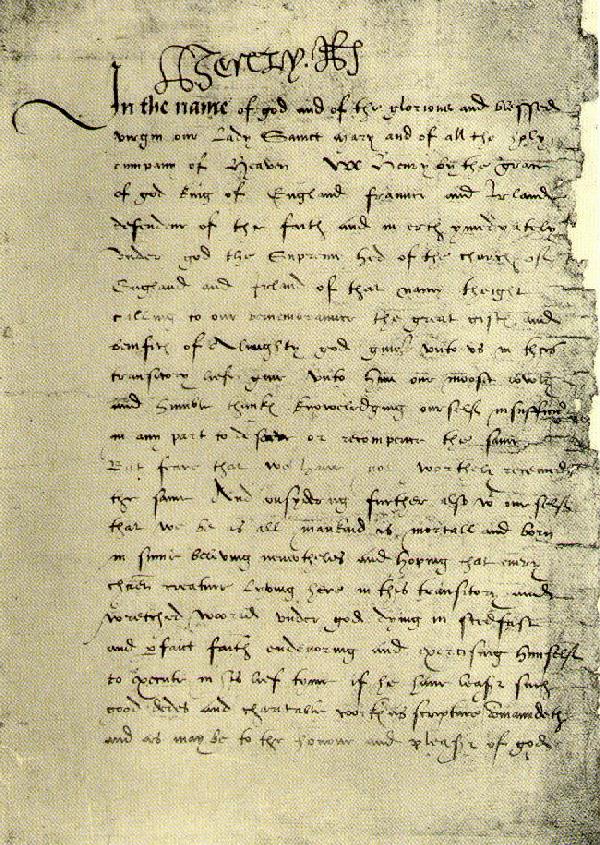 Henry R
In the name of god and of the glorious and blessed
virgin our Lady Sainct Mary and of all the holy
company of Heaven We Henry by the grace
of god King of England fraunce and Irland
defendour of the faith and in erth ymmediately
under god the Supreme hed of the church of
England and Irland of that name theight
calling to our remembraunce the great gifts and
benifits of Almighty god given unto us in this
transitory lief geve unto him our moost lowly
and humble thanks knowledging ourself insufficient
in any part to deserve or recompence the same
But feare that we have not worthely received
the same And considering further also with our self
that we be as all mankind is mortall and born
in sinne believing nevertheles and hoping that every
chren creature living here in this transitory and
wretched woorld under god dying in stedfast
and pfaict faith endevoring and exercising himself
to execute in his lief tyme if he have leasr such
good dedes and charitable works as scripture comaundeth
and as may be to the honour and pleasr of god